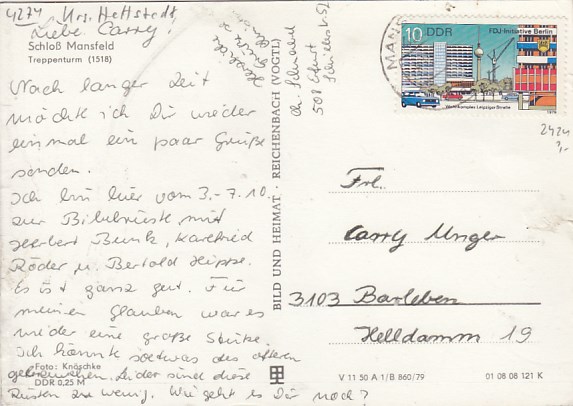 4274 Krs. Hettstedt,
Liebe Carry!
Schloß Mansfeld
Treppenturm (1518)
Nach langer Zeit
möcht ich Dir wieder
einmal ein paar Grüße
senden.
Ich bin hier vom 3.-7.10.
zur Bibelrüste mit
Herbert Bunk, Karlfried
Röder u. Bertold Hippe.
Es ist ganz gut. Für
meinen Glauben war es
wieder eine große Stütze.
Ich könnte soetwas des öfteren
Leider sind diese
Rüsten zu wenig. Wie geht es Dir noch?
Foto: Knäschke
DDR 0,25 M
Herzliche
508 Erfurt
BILD UND HEIMAT · REICHENBACH (VOGTL)
MANS
10 DDR
FDJ-Initiative Berlin
Wohnkomplex Leipziger Straße
1979
2424
Frl.
Carry Unger
3103 Barleben
Helldamm 19
V 11 50 A 1/B 860/79
01 08 08 121 K